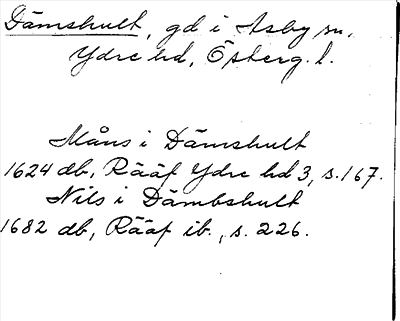 Dämshult, gd i Asby sn,
Ydre hd, Österg. l.
Måns i Dämshult
1624 db, Rääf Ydre hd 3, s. 167.
Nils i Dämbshult
1682 db, Rääf ib., s. 226.